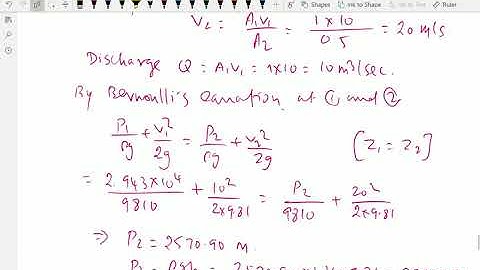 Shapes Ink to Shape Ink to Math Ruler
V₂ = A₁V₁ / A₂ = 1 × 10 / 0.5 = 20 m/s
Discharge Q = A₁V₁ = 1×10 = 10 m³/sec.
By Bernoulli's equation at ① and ②
P₁/ρg + V₁²/2g = P₂/ρg + V₂²/2g [Z₁ = Z₂]
= 2.943×10⁴/9810 + 10²/2×9.81 = P₂/9810 + 20²/2×9.81
⇒ P₂ = 2570.90 m.